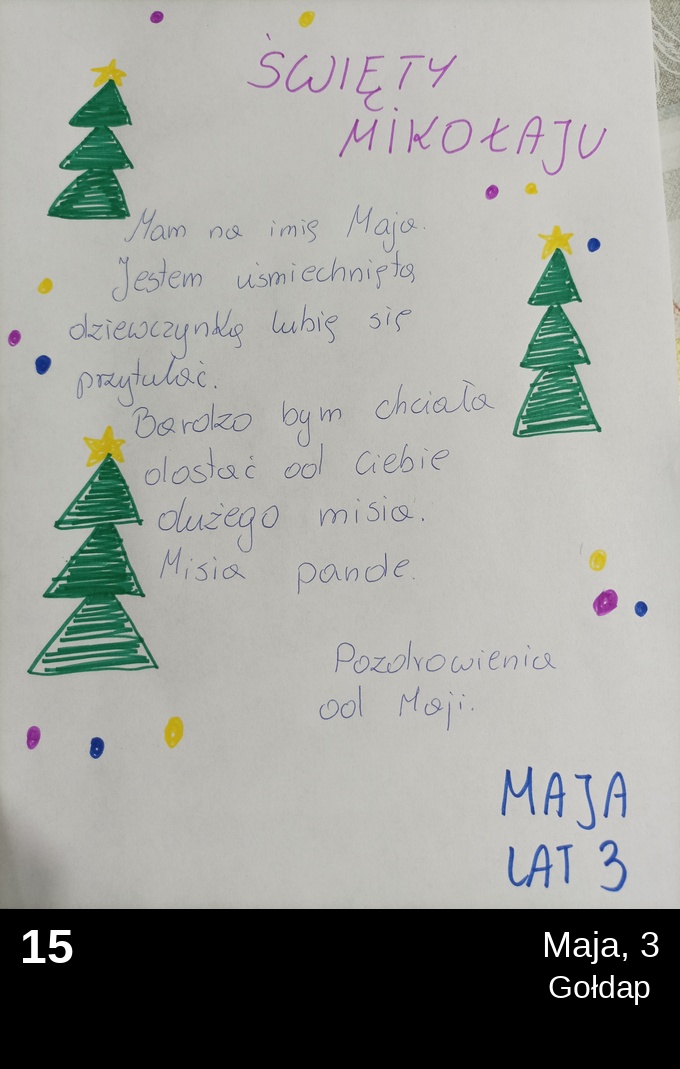 ŚWIĘTY
MIKOŁAJU
Mam na imię Maja.
Jestem uśmiechniętą
dziewczynką lubię się
przytulać.
Bardzo bym chciała
dostać od Ciebie
dużego misia.
Misia pande.
Pozdrowienia
od Maji.
MAJA
LAT 3
15
Maja, 3
Gołdap